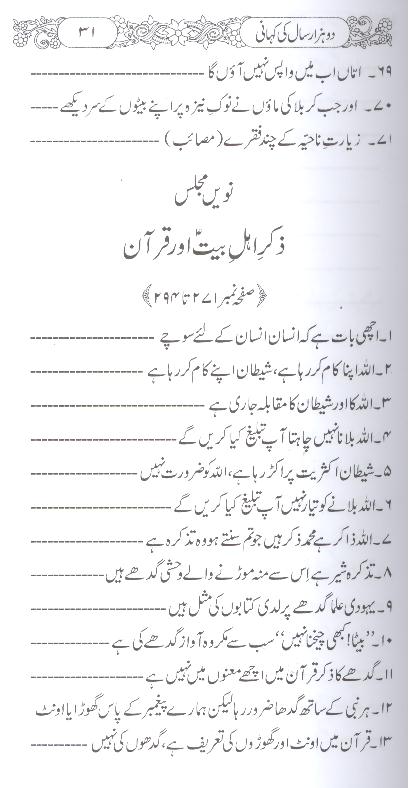 دو ہزار سال کی کہانی ۳۱
۶۹۔ اتاں اب میں واپس نہیں آؤں گا ------------------------
۷۰۔ اور جب کربلا کی ماؤں نے نوکِ نیزہ پر اپنے بیٹوں کے سر دیکھے -----
۷۱۔ زیارتِ ناحیّہ کے چند فقرے (مصائب) ------------------
نویں مجلس
ذکرِ اہلِ بیتؑ اور قرآن
﴿صفحہ نمبر ۲۷۱ تا ۲۹۴﴾
۱۔ اچھی بات ہے کہ انسان انسان کے لئے سوچے -----------------
۲۔ اللہ اپنا کام کر رہا ہے، شیطان اپنے کام کر رہا ہے ----------------
۳۔ اللہ کا اور شیطان کا مقابلہ جاری ہے ------------------------
۴۔ اللہ بلانا نہیں چاہتا آپ تبلیغ کیا کریں گے --------------------
۵۔ شیطان اکثریت پر اکڑ رہا ہے، اللہ کو ضرورت نہیں ---------------
۶۔ اللہ بلانے کو تیار نہیں آپ تبلیغ کیا کریں گے --------------------
۷۔ اللہ ذاکر ہے محمدؐ ذکر ہیں جو تم سنتے ہو وہ تذکرہ ہے ----------------
۸۔ تذکرہ شیر ہے اِس سے منہ موڑنے والے وحشی گدھے ہیں -----------
۹۔ یہودی علما گدھے پر لدی کتابوں کی مثل ہیں -------------------
۱۰۔ ’’بیٹا! کبھی چیخنا نہیں‘‘ سب سے مکروہ آواز گدھے کی ہے -----------
۱۱۔ گدھے کا ذکر قرآن میں اچھے معنوں میں نہیں ہے ---------------
۱۲۔ ہر نبی کے ساتھ گدھا ضرور رہا لیکن ہمارے پیغمبرؐ کے پاس گھوڑا یا اونٹ
۱۳۔ قرآن میں اونٹ اور گھوڑوں کی تعریف ہے، گدھوں کی نہیں ----------